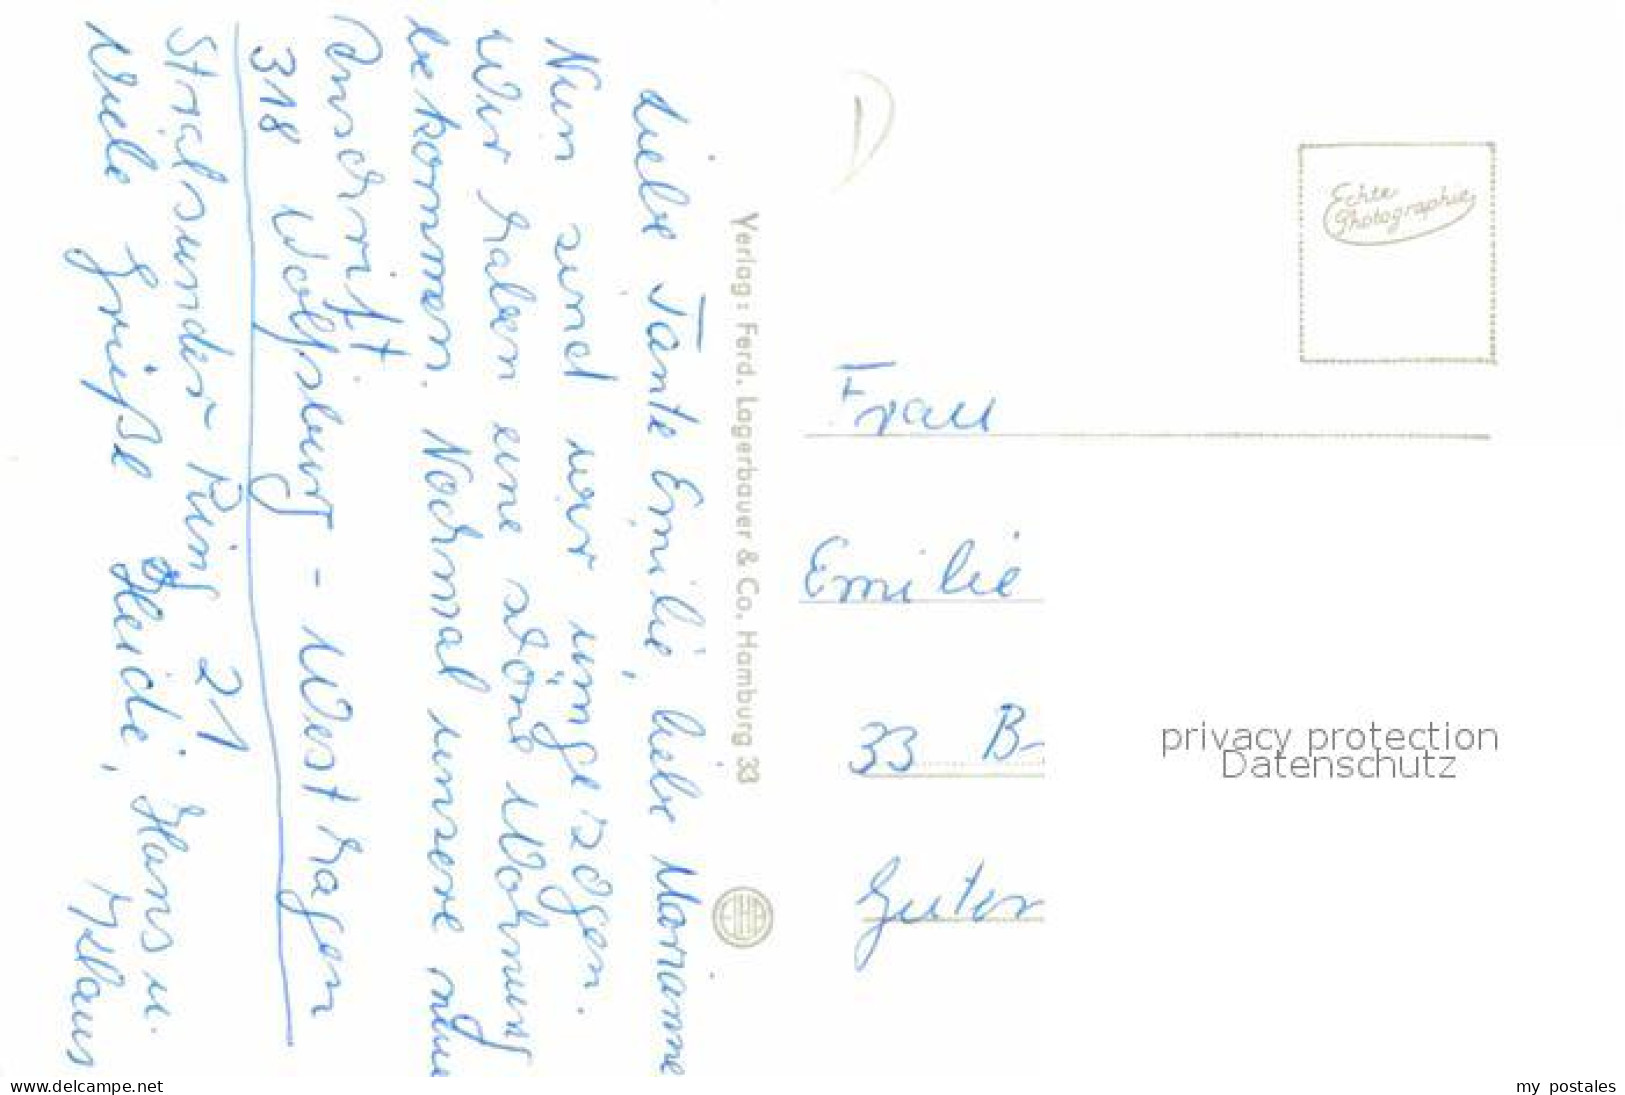 Liebe Tante Emilie, liebe Marianne
Nun sind wir umgezogen.
Wir haben eine schöne Wohnung
bekommen. Nochmal unsere neue
Anschrift
318 Wolfsburg - Westhagen
Stralsunder Ring 21
Viele Grüße Heidi, Hans u.
Klaus
Verlag: Ferd. Lagerbauer & Co. Hamburg 33
Echte
Photographie
Frau
Emilie
33 B-
privacy protection
Datenschutz
www.delcampe.net
my postales